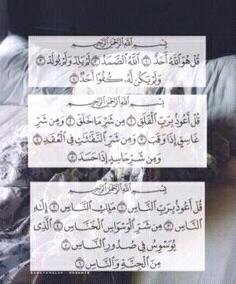 بِسْمِ اللَّهِ الرَّحْمَٰنِ الرَّحِيمِ
قُلْ هُوَ اللَّهُ أَحَدٌ ١ اللَّهُ الصَّمَدُ ٢ لَمْ يَلِدْ وَلَمْ يُولَدْ ٣
وَلَمْ يَكُنْ لَهُ كُفُوًا أَحَدٌ ٤
بِسْمِ اللَّهِ الرَّحْمَٰنِ الرَّحِيمِ
قُلْ أَعُوذُ بِرَبِّ الْفَلَقِ ١ مِنْ شَرِّ مَا خَلَقَ ٢ وَمِنْ شَرِّ
غَاسِقٍ إِذَا وَقَبَ ٣ وَمِنْ شَرِّ النَّفَّاثَاتِ فِي الْعُقَدِ ٤
وَمِنْ شَرِّ حَاسِدٍ إِذَا حَسَدَ ٥
بِسْمِ اللَّهِ الرَّحْمَٰنِ الرَّحِيمِ
قُلْ أَعُوذُ بِرَبِّ النَّاسِ ١ مَلِكِ النَّاسِ ٢ إِلَٰهِ
النَّاسِ ٣ مِنْ شَرِّ الْوَسْوَاسِ الْخَنَّاسِ ٤ الَّذِي
يُوَسْوِسُ فِي صُدُورِ النَّاسِ ٥
مِنَ الْجِنَّةِ وَالنَّاسِ ٦